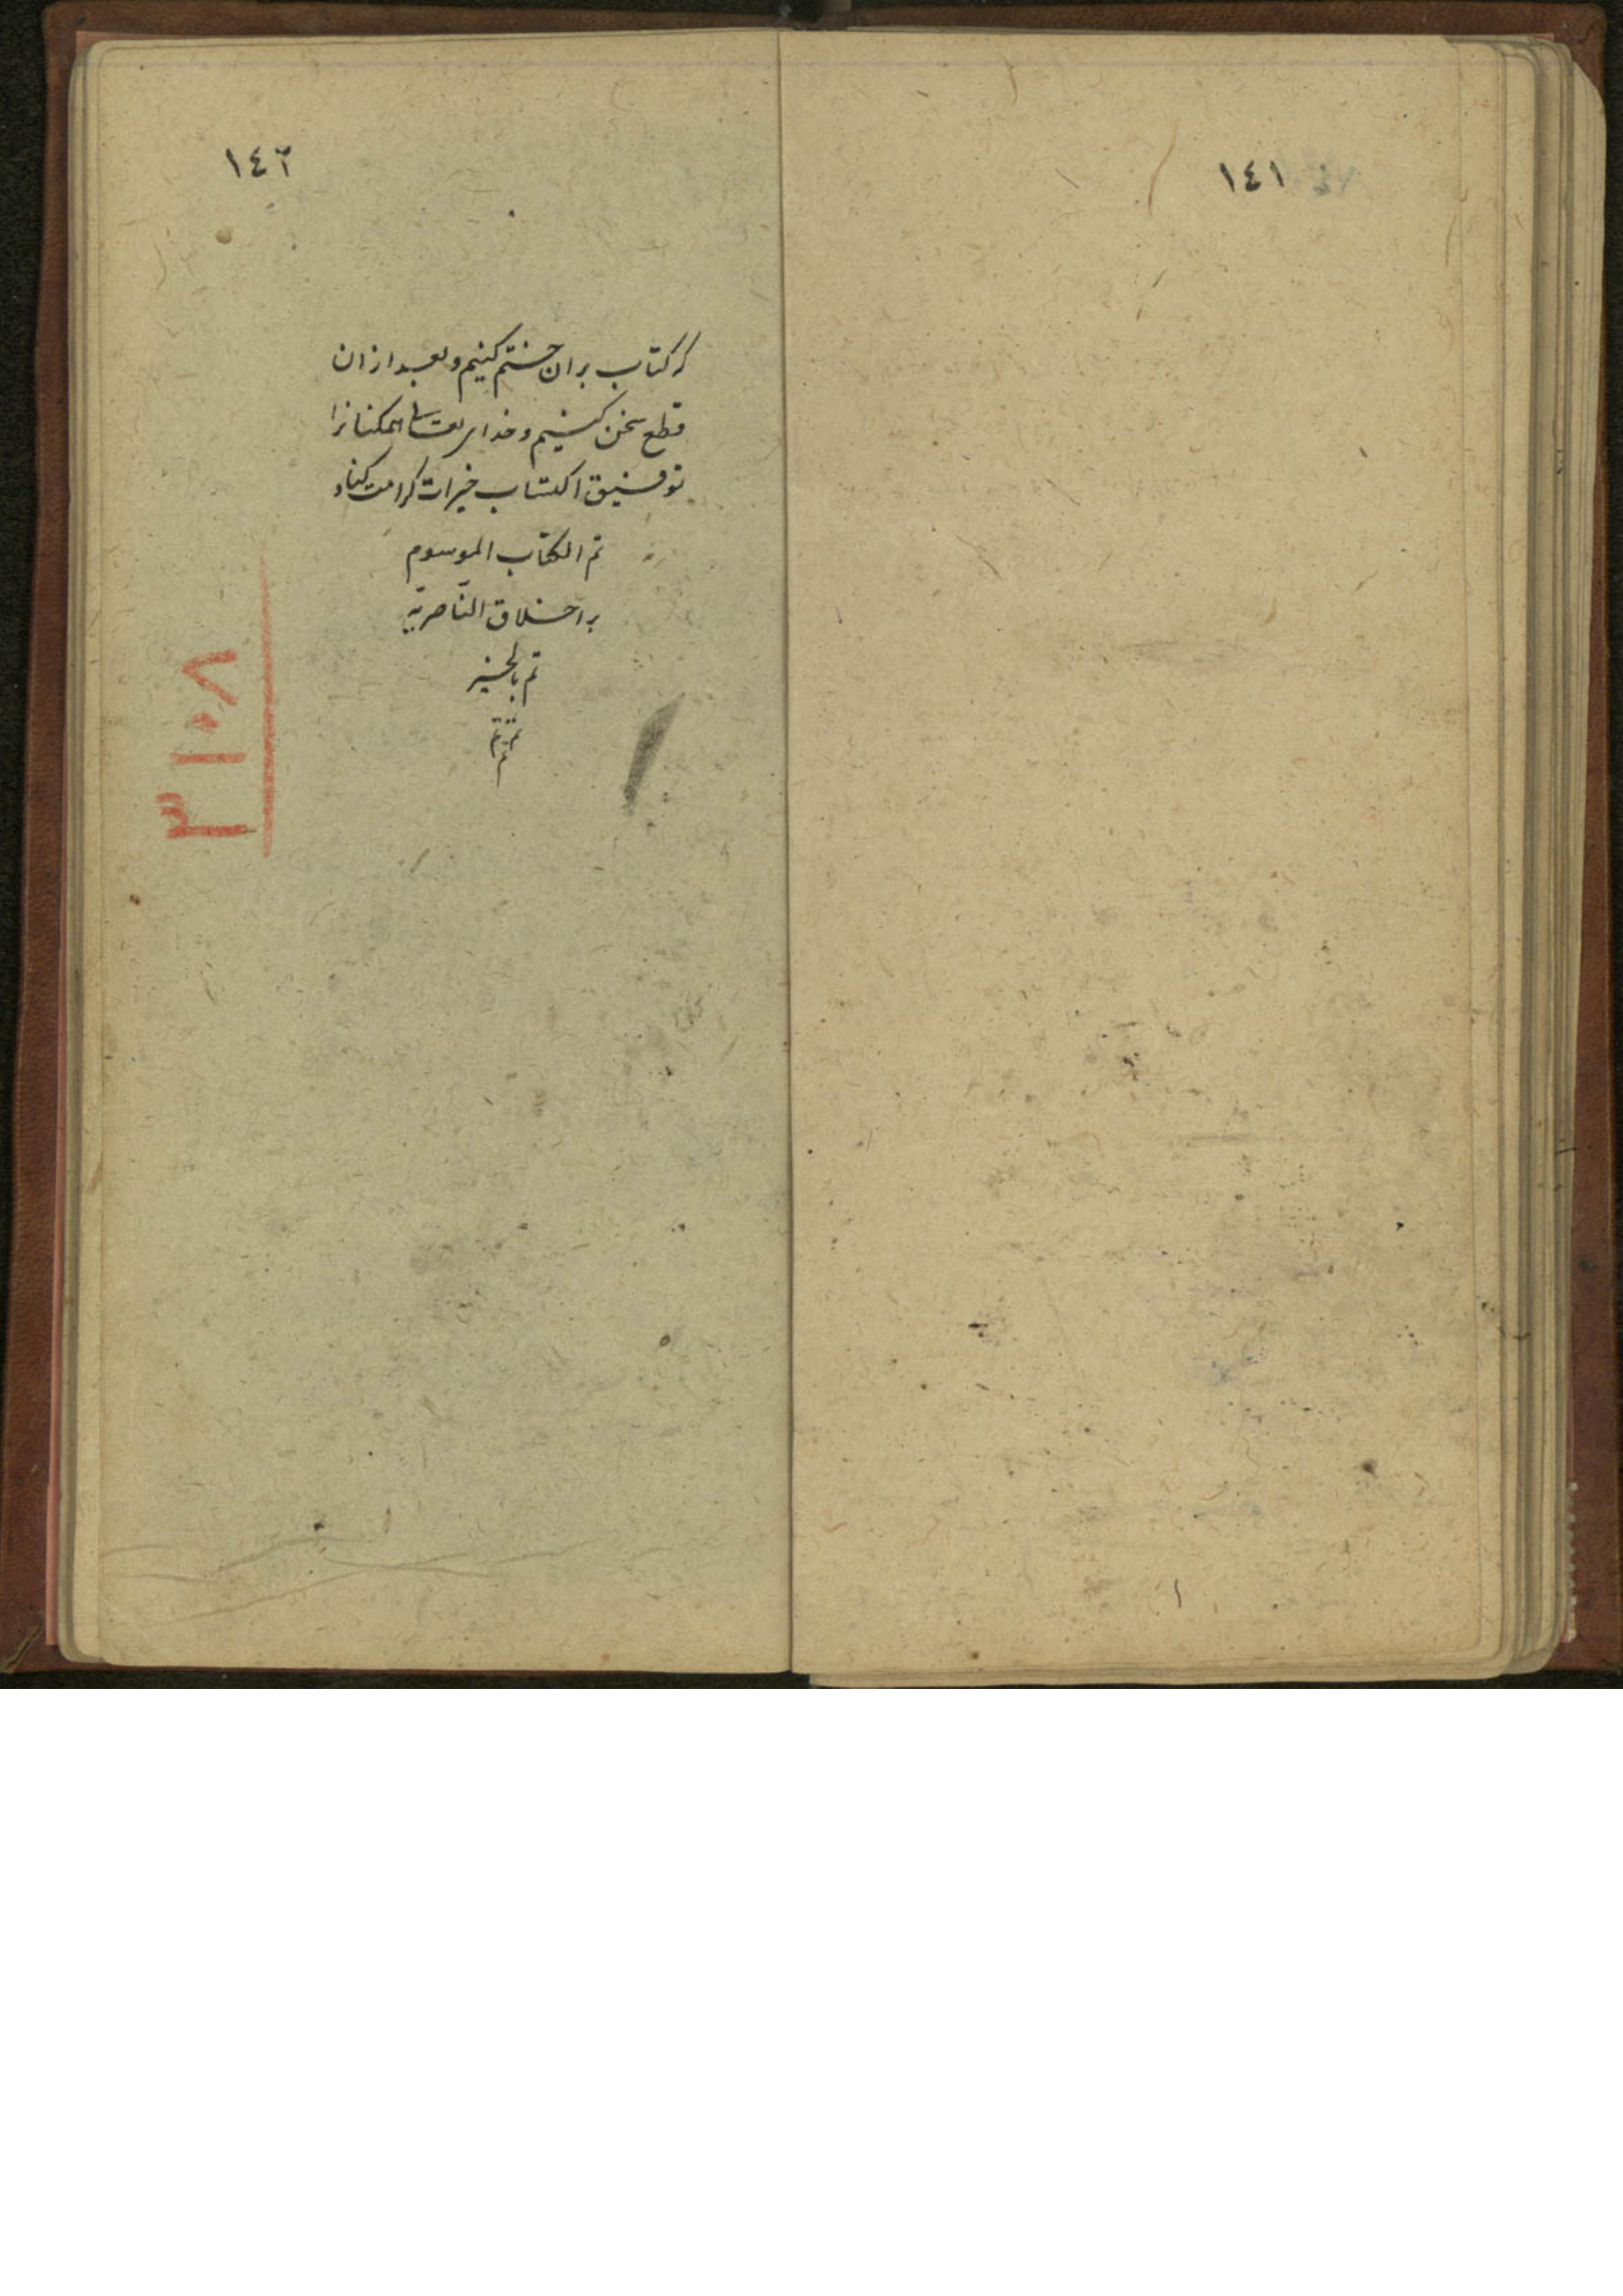 ١٤١
١٤٢
که کتاب بران ختم کنیم و بعد ازان
قطع سخن کنیم و خدای تعالی همکنانرا
توفیق اکتساب خیرات کرامت کناد
تم الکتاب الموسوم
به اخلاق الناصریه
تم بالخیر
تم تم
تم
٣١٠٨